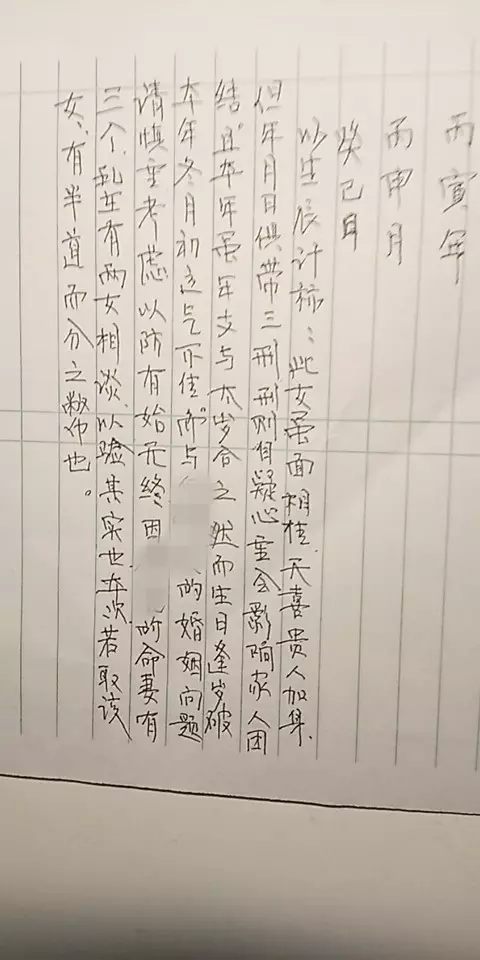 丙寅年
丙申月
癸巳日
以生辰计称：此女虽面相桂、天喜贵人加集、
但年月日俱带三刑刑则有疑心重会影响家人团
结且本年虽年支与太岁合之然而生日逢岁破
本年冬月初这亦佳那与的婚姻问题
请慎重考虑以防有始无终因所命妻有
三个、乱在有两女相谈、以验其实也本次若取该
女、有半道而分之弊也。